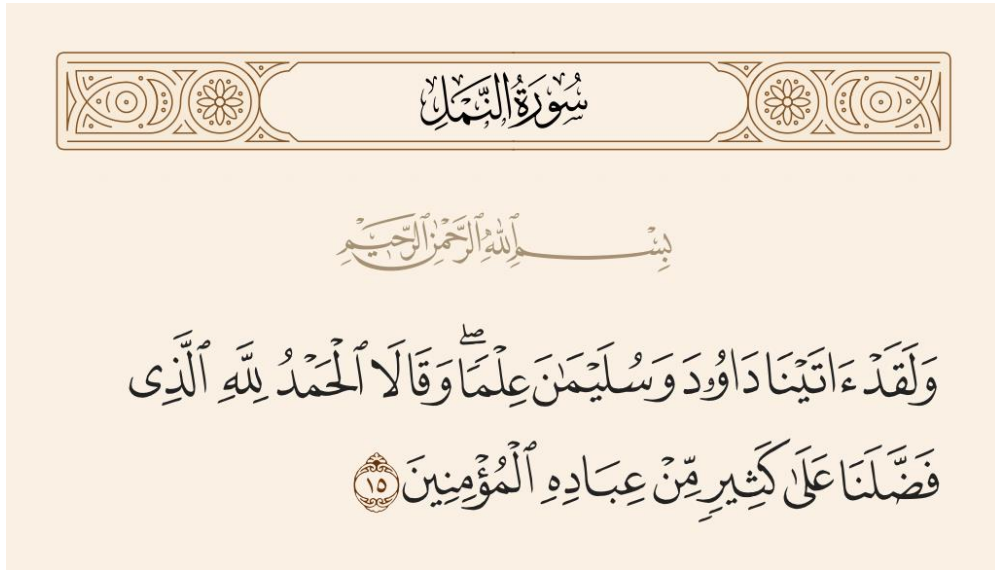 سُورَةُ النَّمْلِ
بِسْمِ ٱللَّهِ ٱلرَّحْمَٰنِ ٱلرَّحِيمِ
وَلَقَدْ ءَاتَيْنَا دَاوُۥدَ وَسُلَيْمَٰنَ عِلْمًا ۖ وَقَالَا ٱلْحَمْدُ لِلَّهِ ٱلَّذِى
فَضَّلَنَا عَلَىٰ كَثِيرٍ مِّنْ عِبَادِهِ ٱلْمُؤْمِنِينَ ١٥